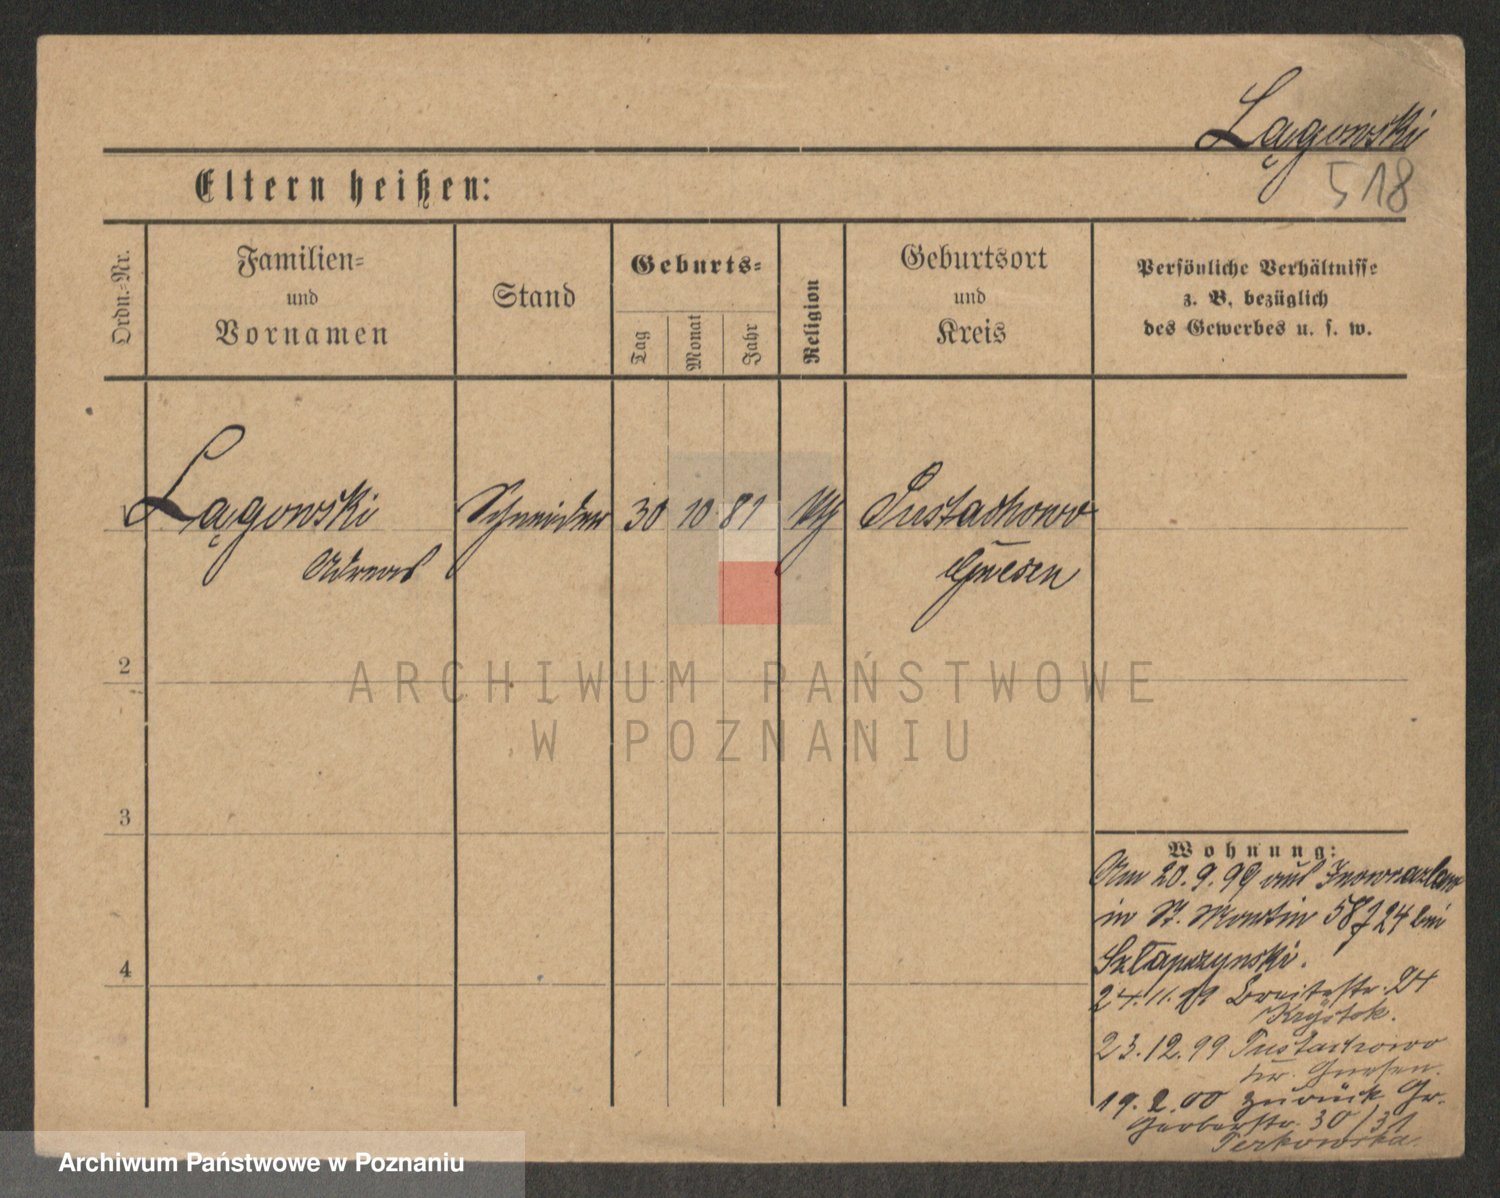 Lągowski
518
Eltern heißen:
Ordn.-Nr.
Familien-
und
Vornamen
Stand
Geburts-
Tag
Monat
Jahr
Religion
Geburtsort
und
Kreis
Persönliche Verhältnisse
z. B. bezüglich
des Gewerbes u. s. w.
1 Lągowski Schneider 30 10 81 Pustachowo
Andreas Gnesen
2
ARCHIWUM PAŃSTWOWE
W POZNANIU
3
4
Wohnung:
Am 20.9.99 aus Inowrazlaw
in St. Martin 58 24 bei
Szłapczynski.
24.11.99 Breitestr. 24
23.12.99 Pustachowo
Kr. Gnesen.
19.2.00 zurück Gr.
Gerberstr. 30/31
Perkowska.
Archiwum Państwowe w Poznaniu